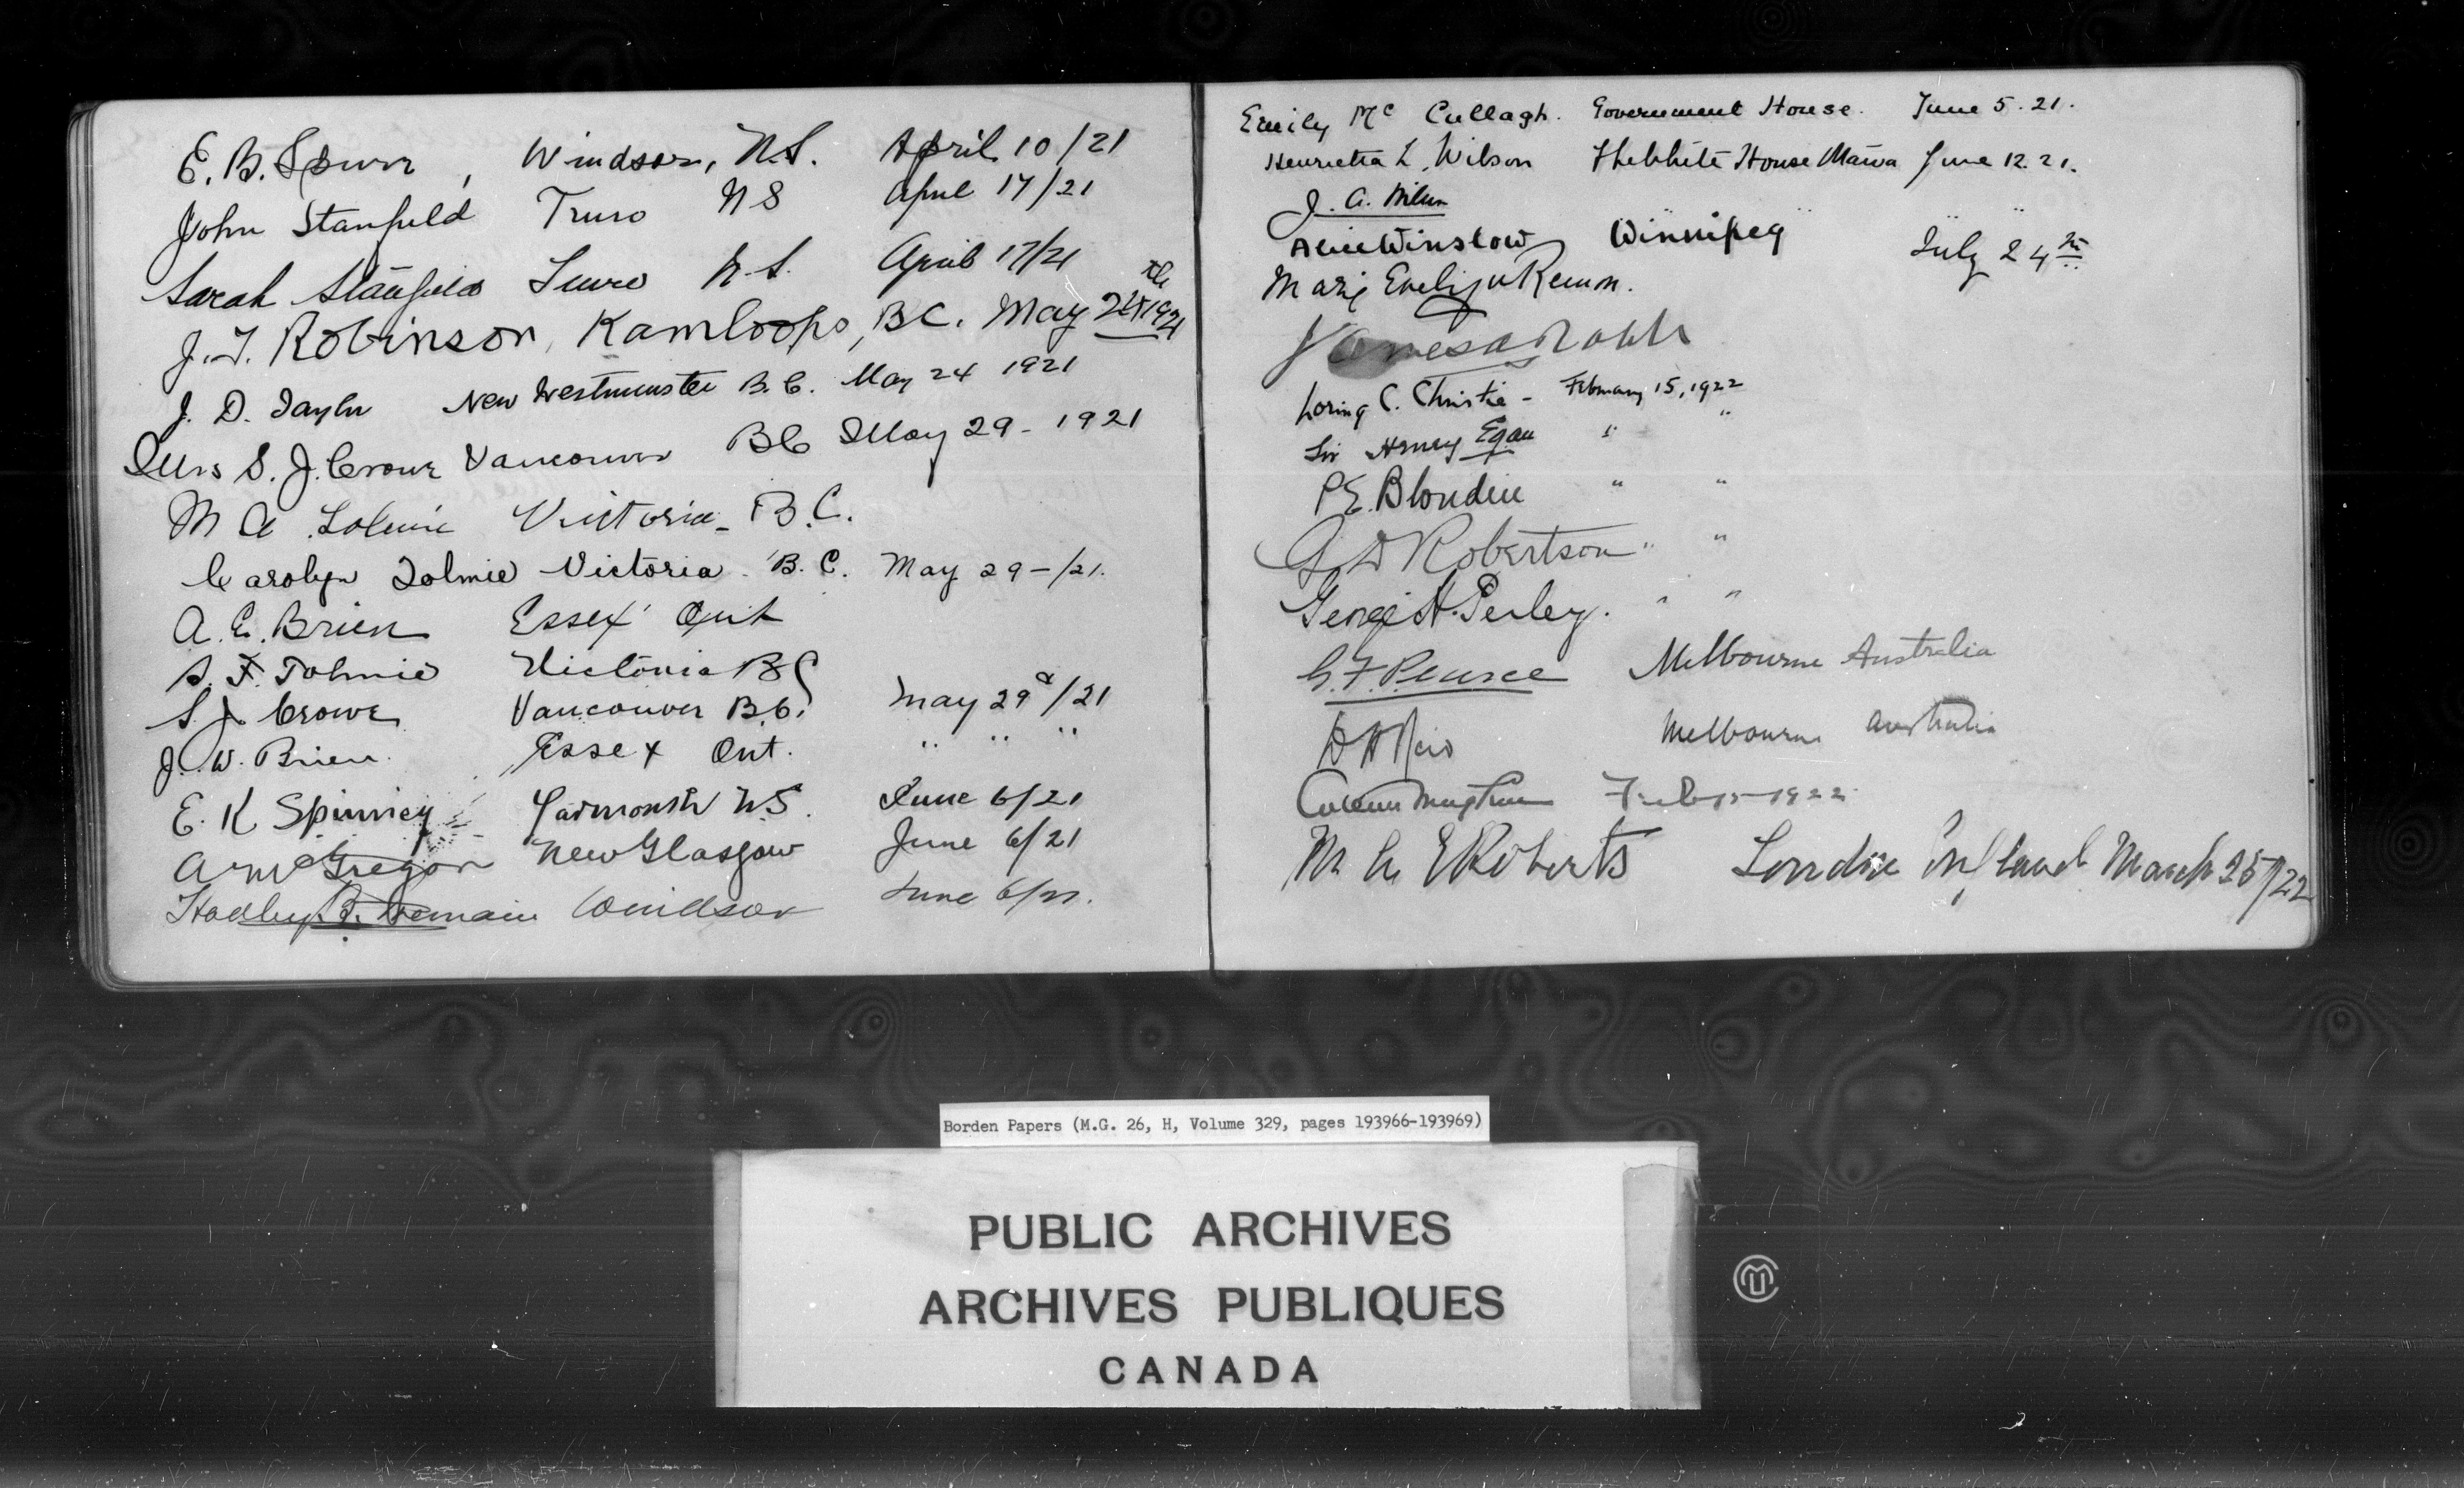 E. B. Spurr, Windsor, N.S. April 10/21
John Stanfield Truro N S April 17/21
Sarah Stanfield Truro N.S. April 17/21
J. T. Robinson, Kamloops, B.C. May 24th 1921
J. D. Taylor New Westminster B.C. May 24 1921
Mrs S. J. Crowe Vancouver BC May 29 - 1921
M A Tolmie Victoria - B.C.
Carolyn Tolmie Victoria - B.C. May 29 -/21.
A. E. Brien Essex Ont
S. F. Tolmie Victoria BC
S. J. Crowe Vancouver B.C. May 29/21
J. W. Brien Essex Ont. " " "
E. K Spinney Yarmouth N.S. June 6/21
A McGregor New Glasgow June 6/21
Hadley B. Tremain Windsor June 6/21.
Emily McCullagh. Government House. June 5. 21.
Henrietta L. Wilson The White House June 12. 21.
J. A. Wilson " "
Alice Winslow Winnipeg July 24th
Marie Evelyn
Loring C. Christie - February 15, 1922
Sir Henry Egan " "
P E. Blondin " "
G D Robertson " "
George H. Perley. " "
G. F. Pearce Melbourne Australia
D H Melbourne Australia
Feb 15 - 1922
M. E Roberts London England March 25/22
Borden Papers (M.G. 26, H, Volume 329, pages 193966-193969)
PUBLIC ARCHIVES
ARCHIVES PUBLIQUES
CANADA